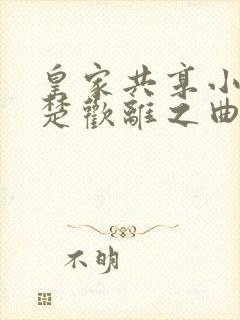 皇家共享小
楚歡離之曲
不明